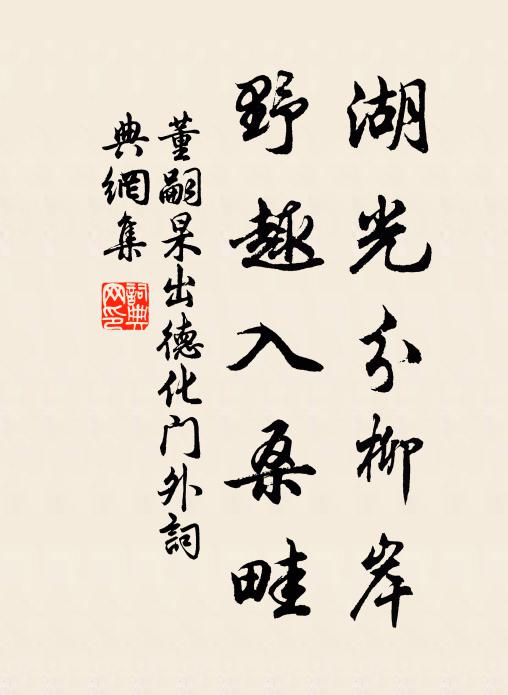 湖光分柳岸
野趣入桑畦
董嗣杲出德化门外词
典網集
詞典網印